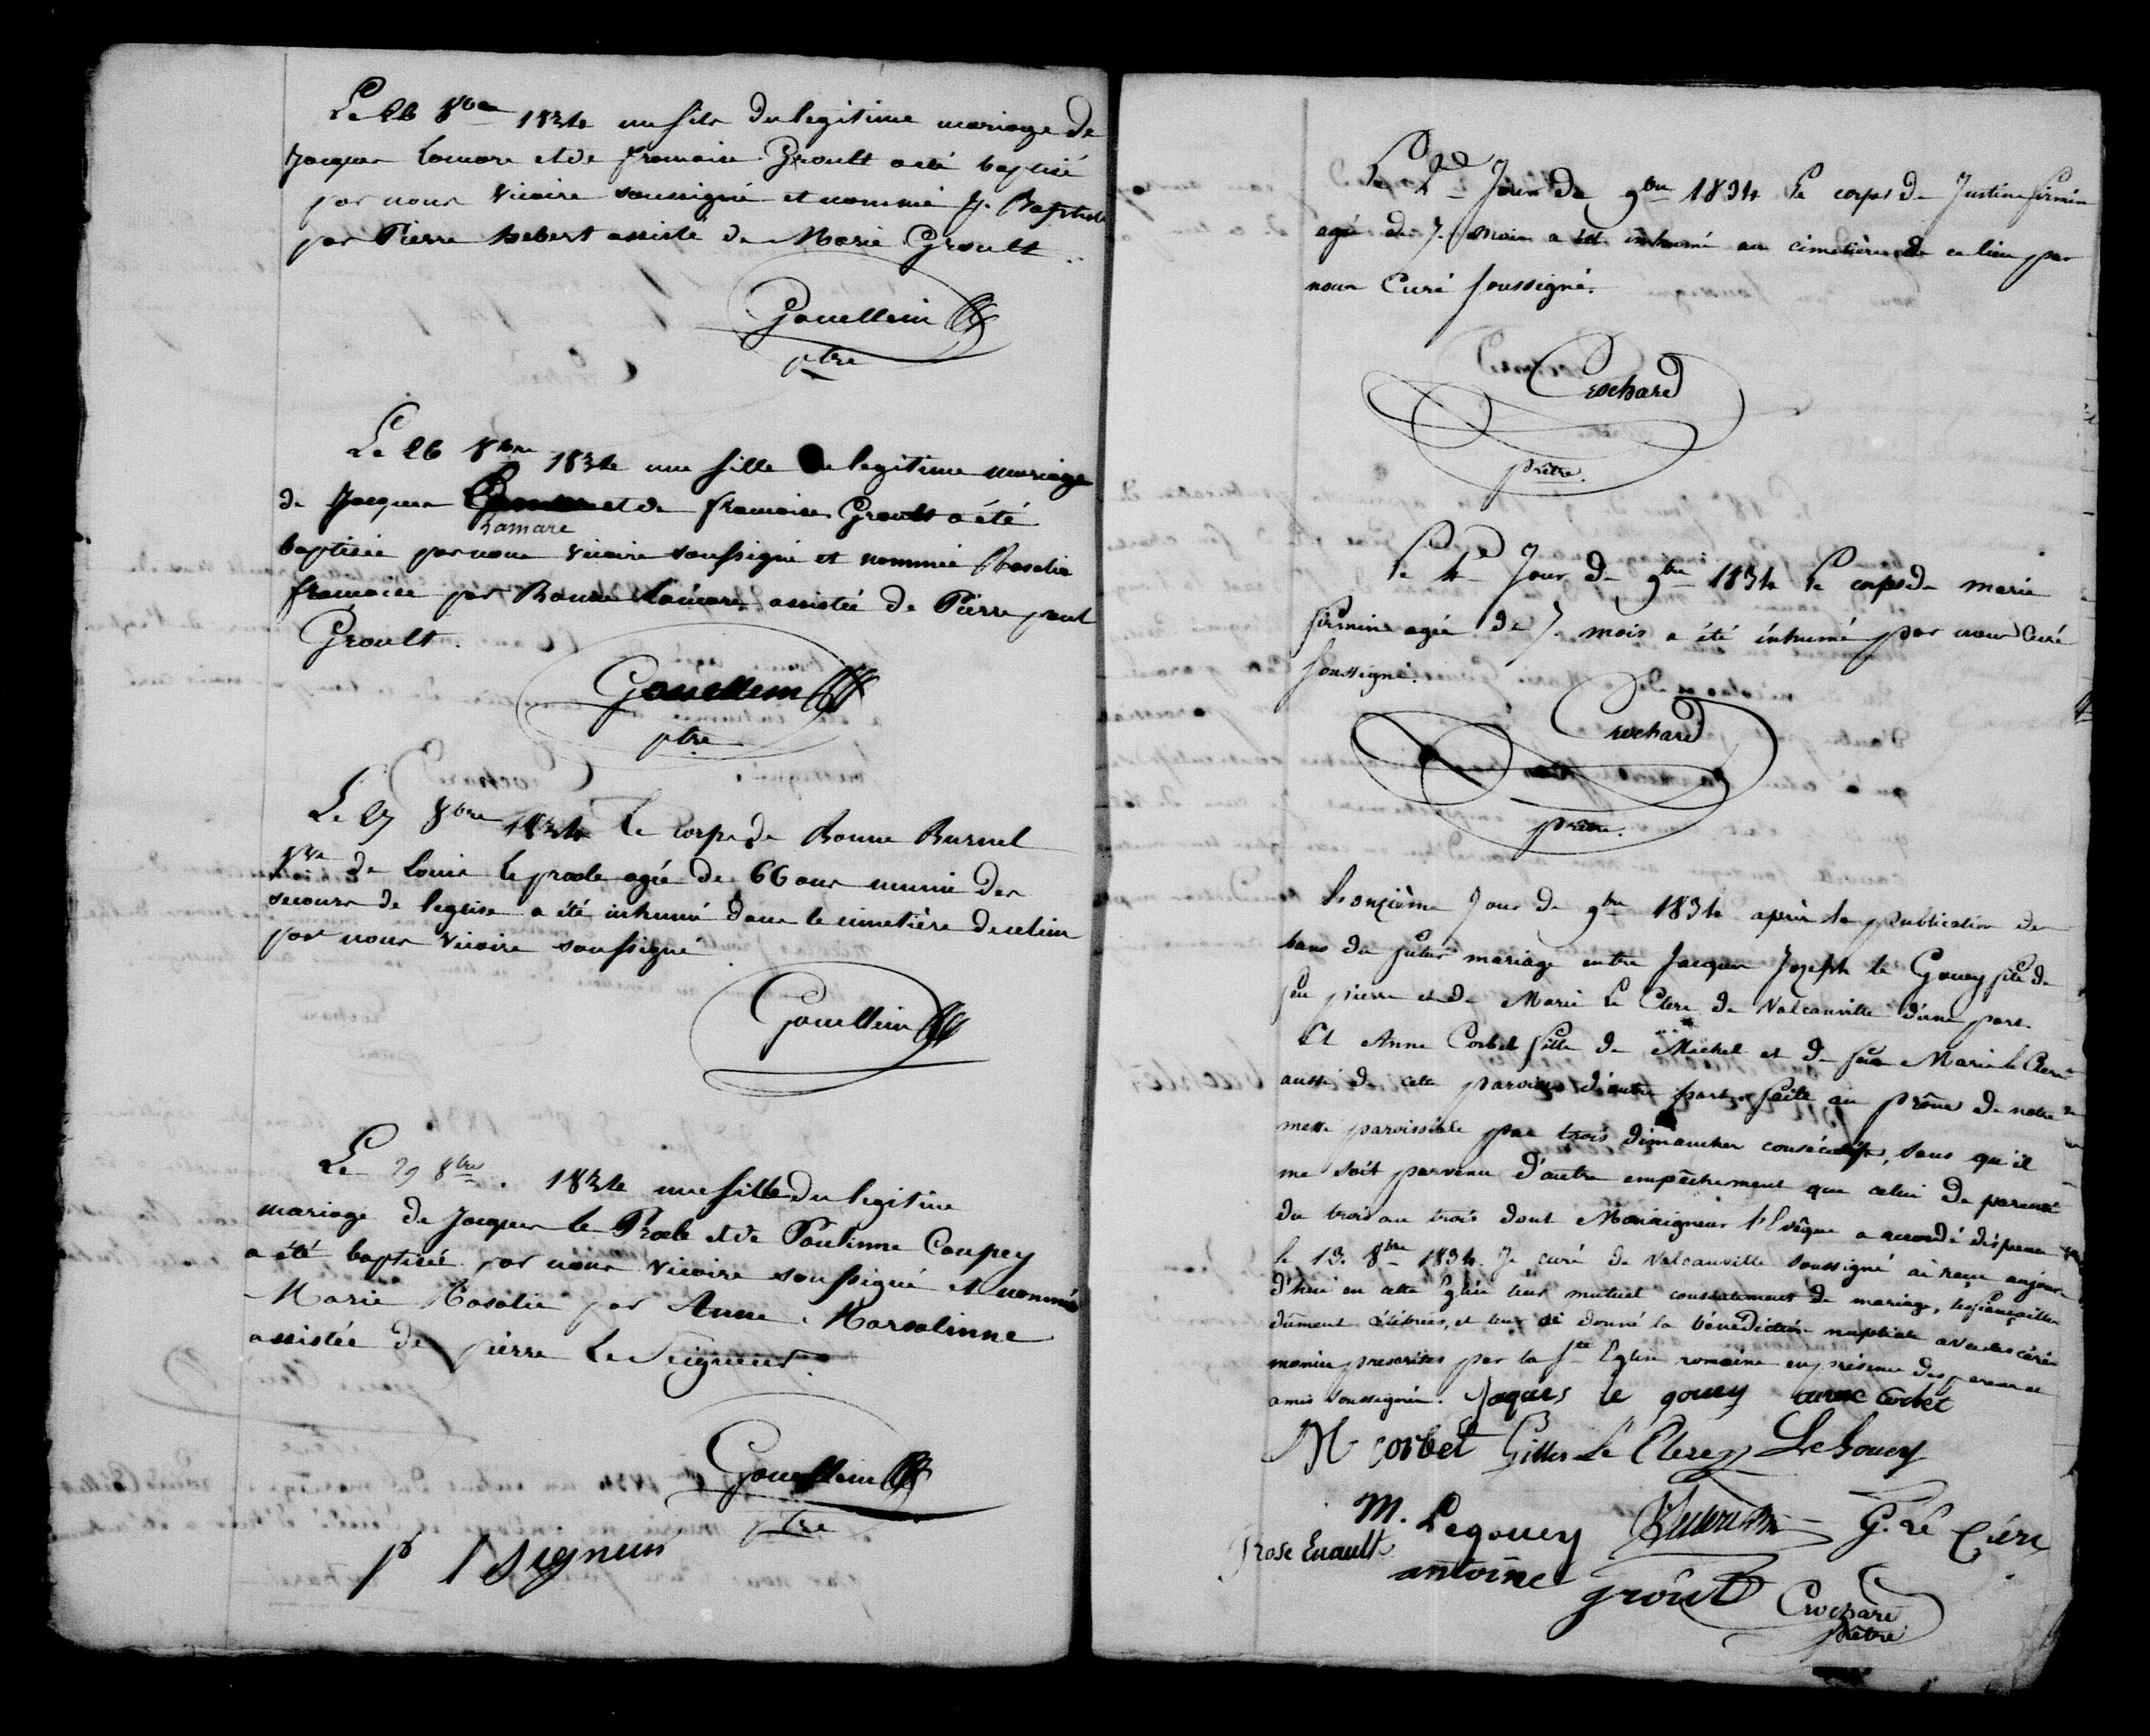 Le 26 8bre 1834 un fils du legitime mariage de
Jacques Lamare et de francoise Groult a été baptisé
par nous vicaire soussigné et nommé J. Baptiste
par Pierre hebert assisté de Marie Groult.
Gouellein
ptre
Le 26 8bre 1834 une fille du legitime mariage
de Jacques et de francoise Groult a été
Lamare
baptisée par nous vicaire soussigné et nommée Rosalie
francoise par Bonne Lamare assistée de Pierre paul
Groult.
Gouellein
ptre
Le 27 8bre 1834 Le corps de Bonne Burnel
de Louis le praole agée de 66 ans munie des
secours de leglise a été inhumé dans le cimetière de ce lieu
par nous vicaire soussigné
Gouellein
Le 29 8bre. 1834 une fille du legitime
mariage de Jacques le Praole et de Paulinne Coupey
a été baptisée par nous vicaire soussigné et nommée
Marie Rosalie par Anne Marsolinne
assistée de pierre Le Seigneur.
Gouellein
ptre
p l signeur
Le 2d Jour de 9bre 1834 Le corps de Justine firmin
agée de 7. mois a été inhumé au cimetière de ce lieu par
nous Curé soussigné.
Crochard
prêtre.
Le 4 Jour de 9bre 1834 Le corps de marie
firmin agée de 7. mois a été inhumé par nous Curé
soussigné.
Crochard
prêtre.
Le onzième Jour de 9bre 1834 après la publication des
bans du futur mariage entre Jacques Jozeph le Gouey fils de
feu pierre et de Marie Le Clerc de Valcanville d'une part.
Et Anne Corbet fille de Michel et de feue Marie le Clerc
aussi de cette paroisse d'autre part. faite au prône de notre
messe paroissiale par trois dimanches consécutifs, sans qu'il
me soit parvenu d'autre empêchement que celui de parenté
du trois au trois dont Monseigneur l'Evêque a accordé dispense
le 13. 8bre 1834. Je curé de Valcanville soussigné ai recu aujour
d'hui en cette Eglise leur mutuel consentement de mariage, les fiançailles
dûment célébrées, et leur ai donné la bénédiction nuptiale avec les céré
monies prescrites par la ste Eglise romaine en présence des parens et
amis soussignés. Jaques le gouey anne Corbet
M corbet Gilles Le Clerc Le Gouey
M. Legouey G. Le Clerc
rose Enault antoine grout Crochard
prêtre